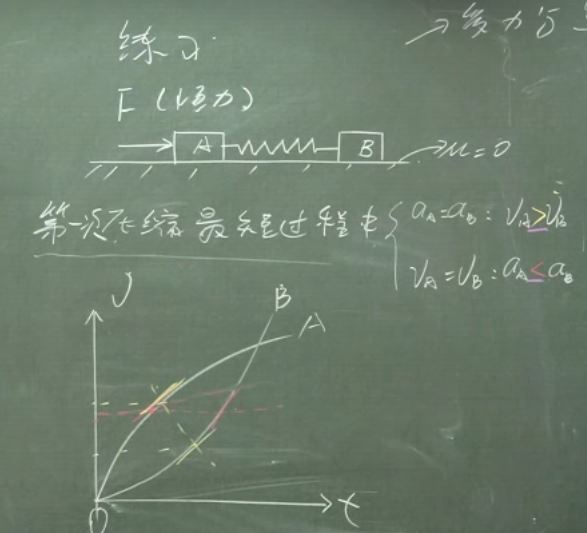 练习
→受力分
F(恒力)
A B →μ=0
第一次压缩最短过程中 { aA=aB:vA>vB
vA=vB:aA<aB
v
B
A
O t